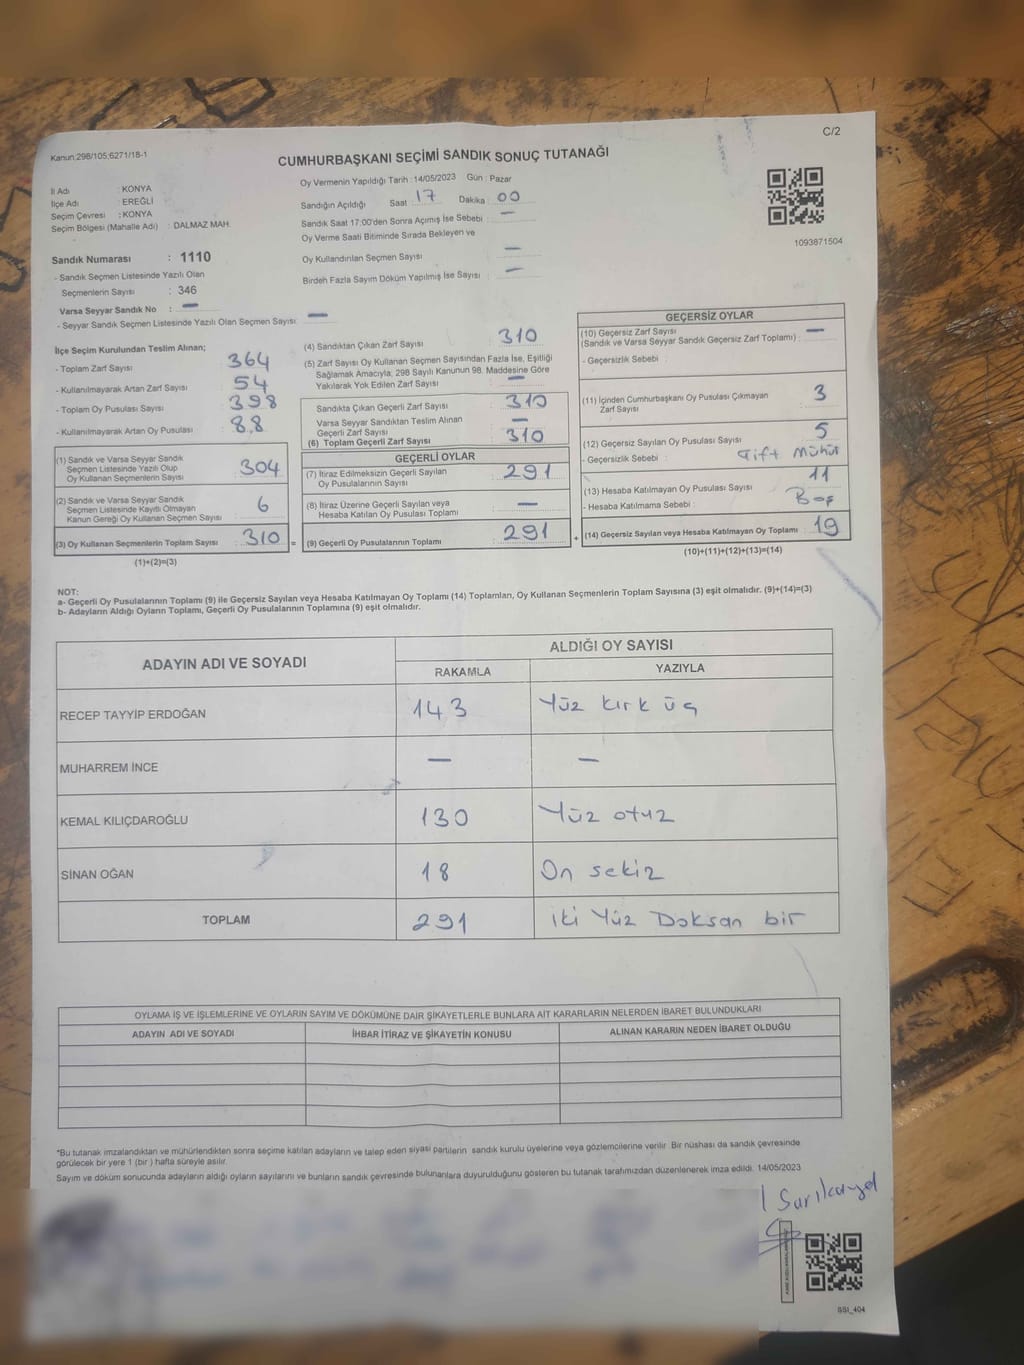 C/2
Kanun:298/105;6271/18-1
CUMHURBAŞKANI SEÇİMİ SANDIK SONUÇ TUTANAĞI
İl Adı : KONYA
İlçe Adı : EREĞLİ
Seçim Çevresi : KONYA
Seçim Bölgesi (Mahalle Adı) : DALMAZ MAH.
Sandık Numarası : 1110
- Sandık Seçmen Listesinde Yazılı Olan
Seçmenlerin Sayısı : 346
Varsa Seyyar Sandık No : —
- Seyyar Sandık Seçmen Listesinde Yazılı Olan Seçmen Sayısı: —
Oy Vermenin Yapıldığı Tarih : 14/05/2023 Gün : Pazar
Sandığın Açıldığı Saat : 17 Dakika : 00
Sandık Saat 17:00'den Sonra Açımış İse Sebebi : —
Oy Verme Saati Bitiminde Sırada Bekleyen ve
Oy Kullandırılan Seçmen Sayısı : —
Birden Fazla Sayım Döküm Yapılmış İse Sayısı : —
1093871504
İlçe Seçim Kurulundan Teslim Alınan;
- Toplam Zarf Sayısı : 364
- Kullanılmayarak Artan Zarf Sayısı : 54
- Toplam Oy Pusulası Sayısı : 398
- Kullanılmayarak Artan Oy Pusulası : 88
(1) Sandık ve Varsa Seyyar Sandık
Seçmen Listesinde Yazılı Olup
Oy Kullanan Seçmenlerin Sayısı : 304
(2) Sandık ve Varsa Seyyar Sandık
Seçmen Listesinde Kayıtlı Olmayan
Kanun Gereği Oy Kullanan Seçmen Sayısı : 6
(3) Oy Kullanan Seçmenlerin Toplam Sayısı : 310 =
(1)+(2)=(3)
(4) Sandıktan Çıkan Zarf Sayısı : 310
(5) Zarf Sayısı Oy Kullanan Seçmen Sayısından Fazla İse, Eşitliği
Sağlamak Amacıyla, 298 Sayılı Kanunun 98. Maddesine Göre
Yakılarak Yok Edilen Zarf Sayısı : —
Sandıkta Çıkan Geçerli Zarf Sayısı : 310
Varsa Seyyar Sandıktan Teslim Alınan
Geçerli Zarf Sayısı : —
(6) Toplam Geçerli Zarf Sayısı : 310
GEÇERLİ OYLAR
(7) İtiraz Edilmeksizin Geçerli Sayılan
Oy Pusulalarının Sayısı : 291
(8) İtiraz Üzerine Geçerli Sayılan veya
Hesaba Katılan Oy Pusulası Toplamı : —
(9) Geçerli Oy Pusulalarının Toplamı : 291 +
GEÇERSİZ OYLAR
(10) Geçersiz Zarf Sayısı
(Sandık ve Varsa Seyyar Sandık Geçersiz Zarf Toplamı) : —
- Geçersizlik Sebebi :
(11) İçinden Cumhurbaşkanı Oy Pusulası Çıkmayan
Zarf Sayısı : 3
(12) Geçersiz Sayılan Oy Pusulası Sayısı : 5
- Geçersizlik Sebebi : Çift Mühür
(13) Hesaba Katılmayan Oy Pusulası Sayısı : 11
- Hesaba Katılmama Sebebi : Boş
(14) Geçersiz Sayılan veya Hesaba Katılmayan Oy Toplamı : 19
(10)+(11)+(12)+(13)=(14)
NOT:
a- Geçerli Oy Pusulalarının Toplamı (9) ile Geçersiz Sayılan veya Hesaba Katılmayan Oy Toplamı (14) Toplamları, Oy Kullanan Seçmenlerin Toplam Sayısına (3) eşit olmalıdır. (9)+(14)=(3)
b- Adayların Aldığı Oyların Toplamı, Geçerli Oy Pusulalarının Toplamına (9) eşit olmalıdır.
ADAYIN ADI VE SOYADI ALDIĞI OY SAYISI
RAKAMLA YAZIYLA
RECEP TAYYİP ERDOĞAN 143 Yüz kırk üç
MUHARREM İNCE — —
KEMAL KILIÇDAROĞLU 130 Yüz otuz
SİNAN OĞAN 18 On sekiz
TOPLAM 291 iki Yüz Doksan bir
OYLAMA İŞ VE İŞLEMLERİNE VE OYLARIN SAYIM VE DÖKÜMÜNE DAİR ŞİKAYETLERLE BUNLARA AİT KARARLARIN NELERDEN İBARET BULUNDUKLARI
ADAYIN ADI VE SOYADI İHBAR İTİRAZ VE ŞİKAYETİN KONUSU ALINAN KARARIN NEDEN İBARET OLDUĞU
*Bu tutanak imzalandıktan ve mühürlendikten sonra seçime katılan adayların ve talep eden siyasi partilerin sandık kurulu üyelerine veya gözlemcilerine verilir. Bir nüshası da sandık çevresinde
görülecek bir yere 1 (bir) hafta süreyle asılır.
Sayım ve döküm sonucunda adayların aldığı oyların sayılarını ve bunların sandık çevresinde bulunanlara duyurulduğunu gösteren bu tutanak tarafımızdan düzenlenerek imza edildi. 14/05/2023
SSI_404